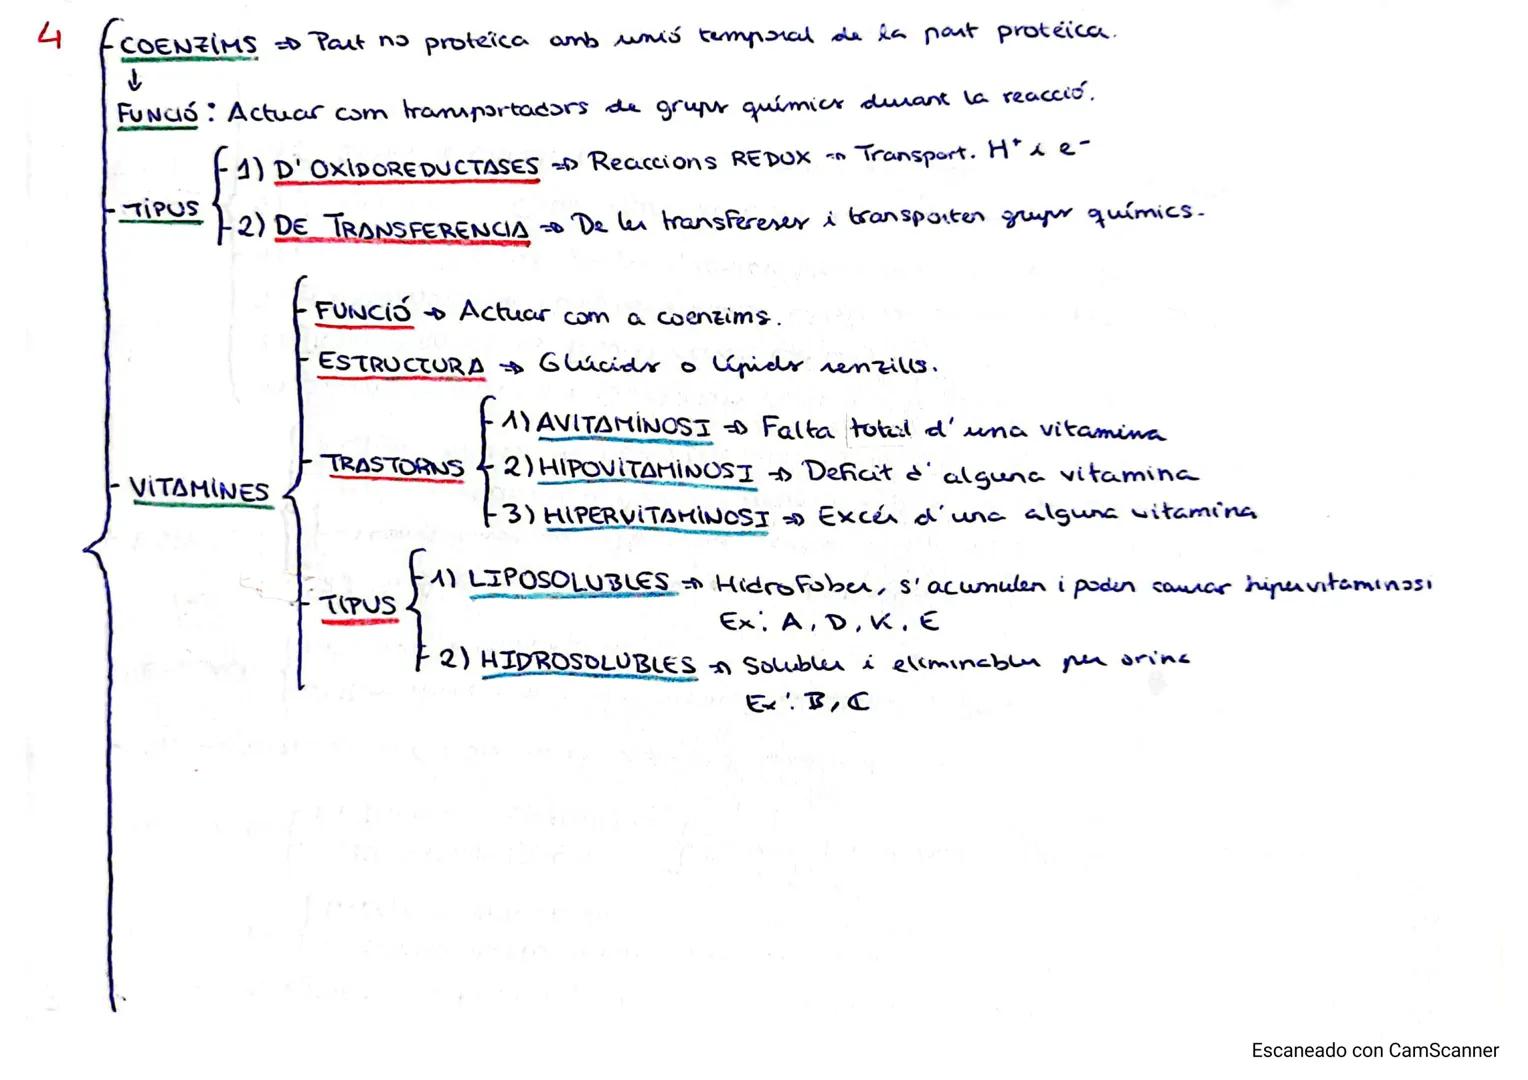 4
COENZÍMS => Part no protéica amb unió temporal de la part protéica.
↓
FUNCIÓ: Actuar com transportadors de grups químics durant la reacció.
TIPUS
1) D'OXIDOREDUCTASES => Reaccions REDUX → Transport. H⁺ i e-
2) DE TRANSFERENCIA => De les transfereses i transporten grups químics.
VITAMINES
FUNCIÓ → Actuar com a coenzims.
ESTRUCTURA => Glúcids o lípids senzills.
TRASTORNS
1) AVITAMINOSI => Falta total d'una vitamina
2) HIPOVITAMINOSI => Deficit d'alguna vitamina
3) HIPERVITAMINOSI => Excés d'una alguna vitamina
TIPUS
1) LIPOSOLUBLES => Hidrofobes, s'acumulen i poden causar hipervitaminosi
Ex: A, D, K, E
2) HIDROSOLUBLES => Solubles i eliminables per orina
Ex: B, C
Escaneado con CamScanner